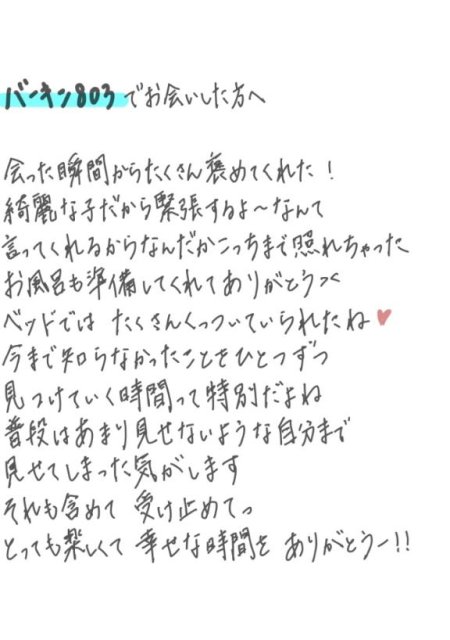 バーキン803でお会いした方へ
会った瞬間からたくさん褒めてくれた！
綺麗な子だから緊張するよ〜なんて
言ってくれるからなんだかこっちまで照れちゃった
お風呂も準備してくれてありがとう><
ベッドでは たくさんくっついていられたね♥
今まで知らなかったことをひとつずつ
見つけていく時間って特別だよね
普段はあまり見せないような自分まで
見せてしまった気がします
それも含めて 受け止めてっ
とっても楽しくて 幸せな時間を ありがとうー!!